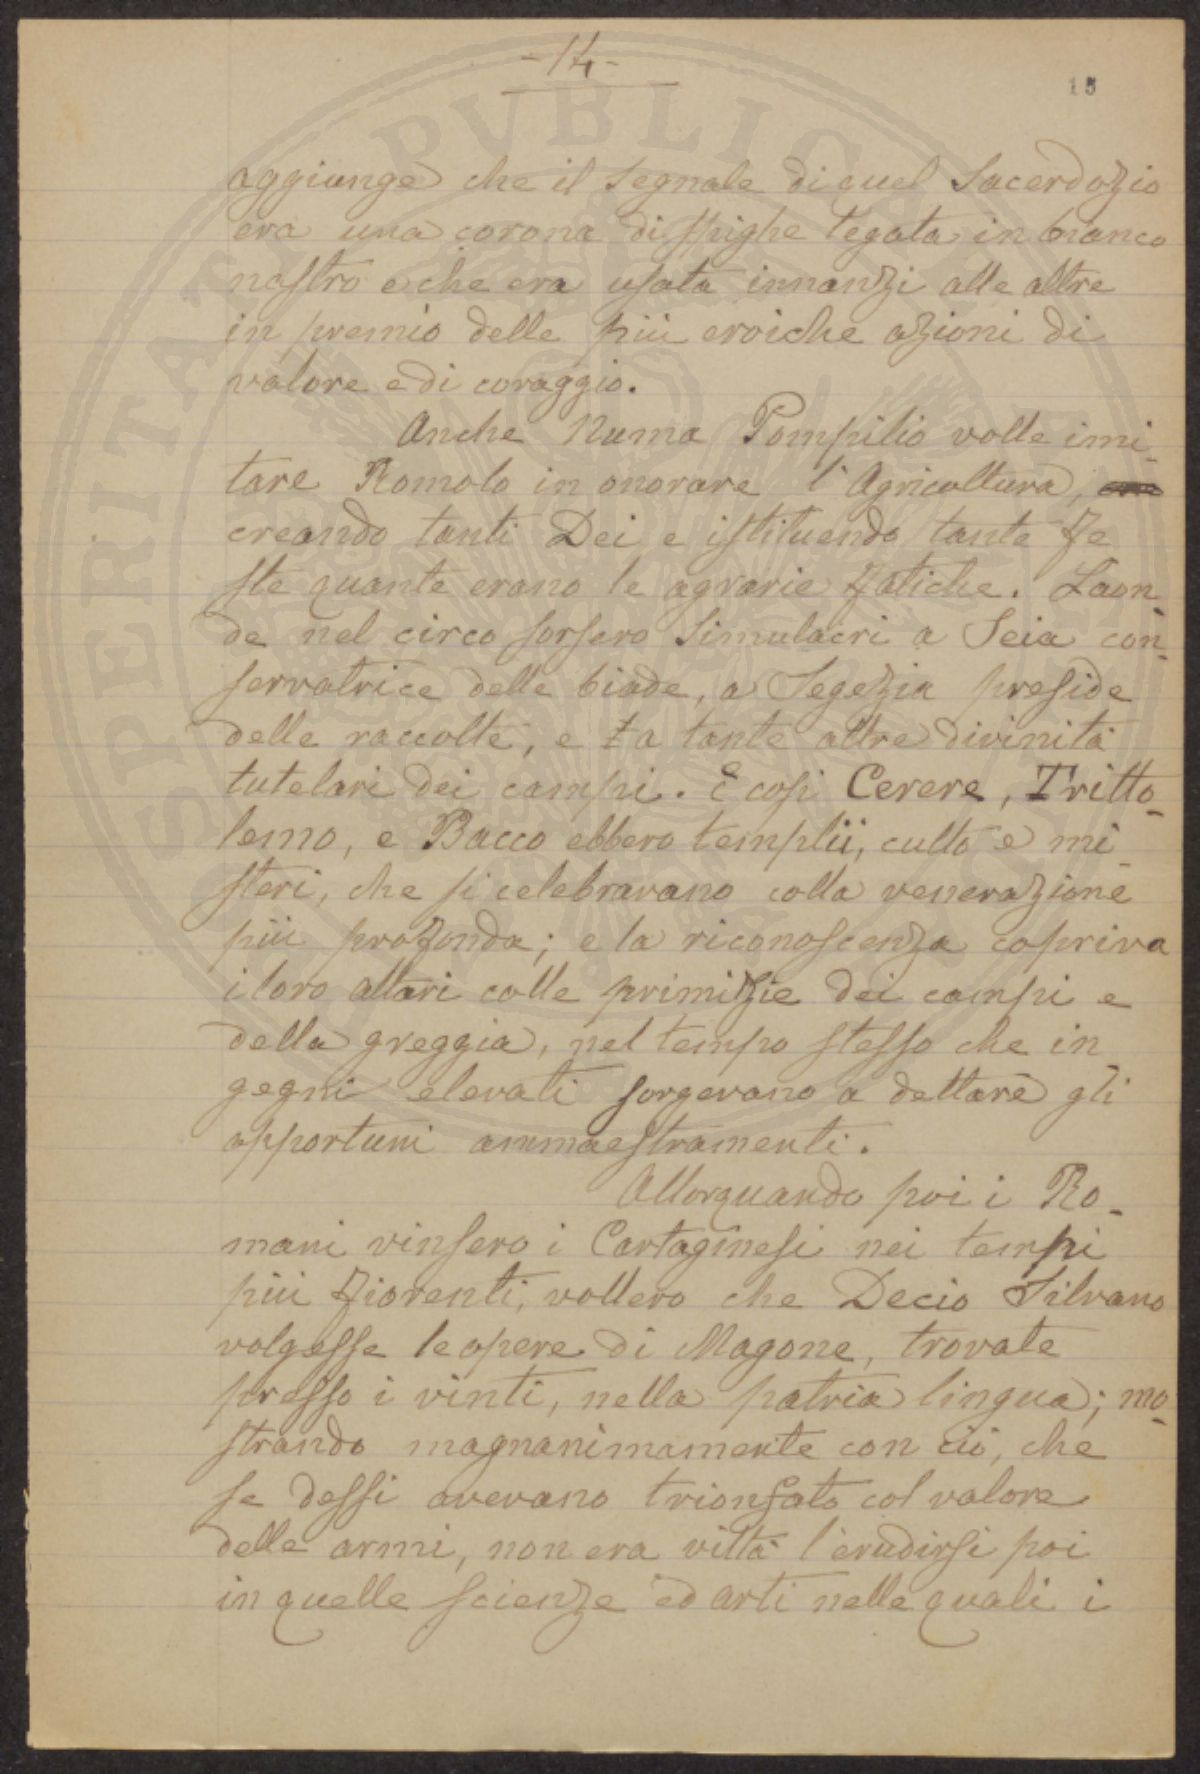 -14-
15
aggiunge che il segnale di quel sacerdozio
era una corona di spighe legata in bianco
nastro e che era usata innanzi alle altre
in premio delle più eroiche azioni di
valore e di coraggio.
Anche Numa Pompilio volle imi-
tare Romolo in onorare l'Agricoltura,
creando tanti Dei e istituendo tante fe
ste quante erano le agrarie fatiche. Laon-
de nel circo sorsero simulacri a Seia con-
servatrice delle biade, a Segezia preside
delle raccolte, e a tante altre divinità
tutelari dei campi. E così Cerere, Tritto-
lemo, e Bacco ebbero templii, culto e mi-
steri, che si celebravano colla venerazione
più profonda; e la riconoscenza copriva
i loro altari colle primizie dei campi e
della greggia, nel tempo stesso che in
gegni elevati sorgevano a dettare gli
opportuni ammaestramenti.
Allorquando poi i Ro-
mani vinsero i Cartaginesi nei tempi
più fiorenti, vollero che Decio Silvano
volgesse le opere di Magone, trovate
presso i vinti, nella patria lingua; mo-
strando magnanimamente con ciò, che
se dessi avevano trionfato col valore
delle armi, non era viltà l'erudirsi poi
in quelle scienze ed arti nelle quali i
PROSPERITATI PVBLICAE